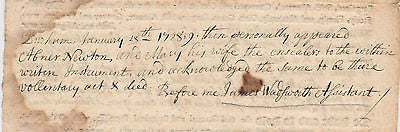 Durham January 28th 1728/9. then personally appeared
Abner Newton and Mary his wife the ensealers to the within
writen Instrument and acknowledged the same to be there
vollentary act & deed. Before me James Wadsworth Assistant